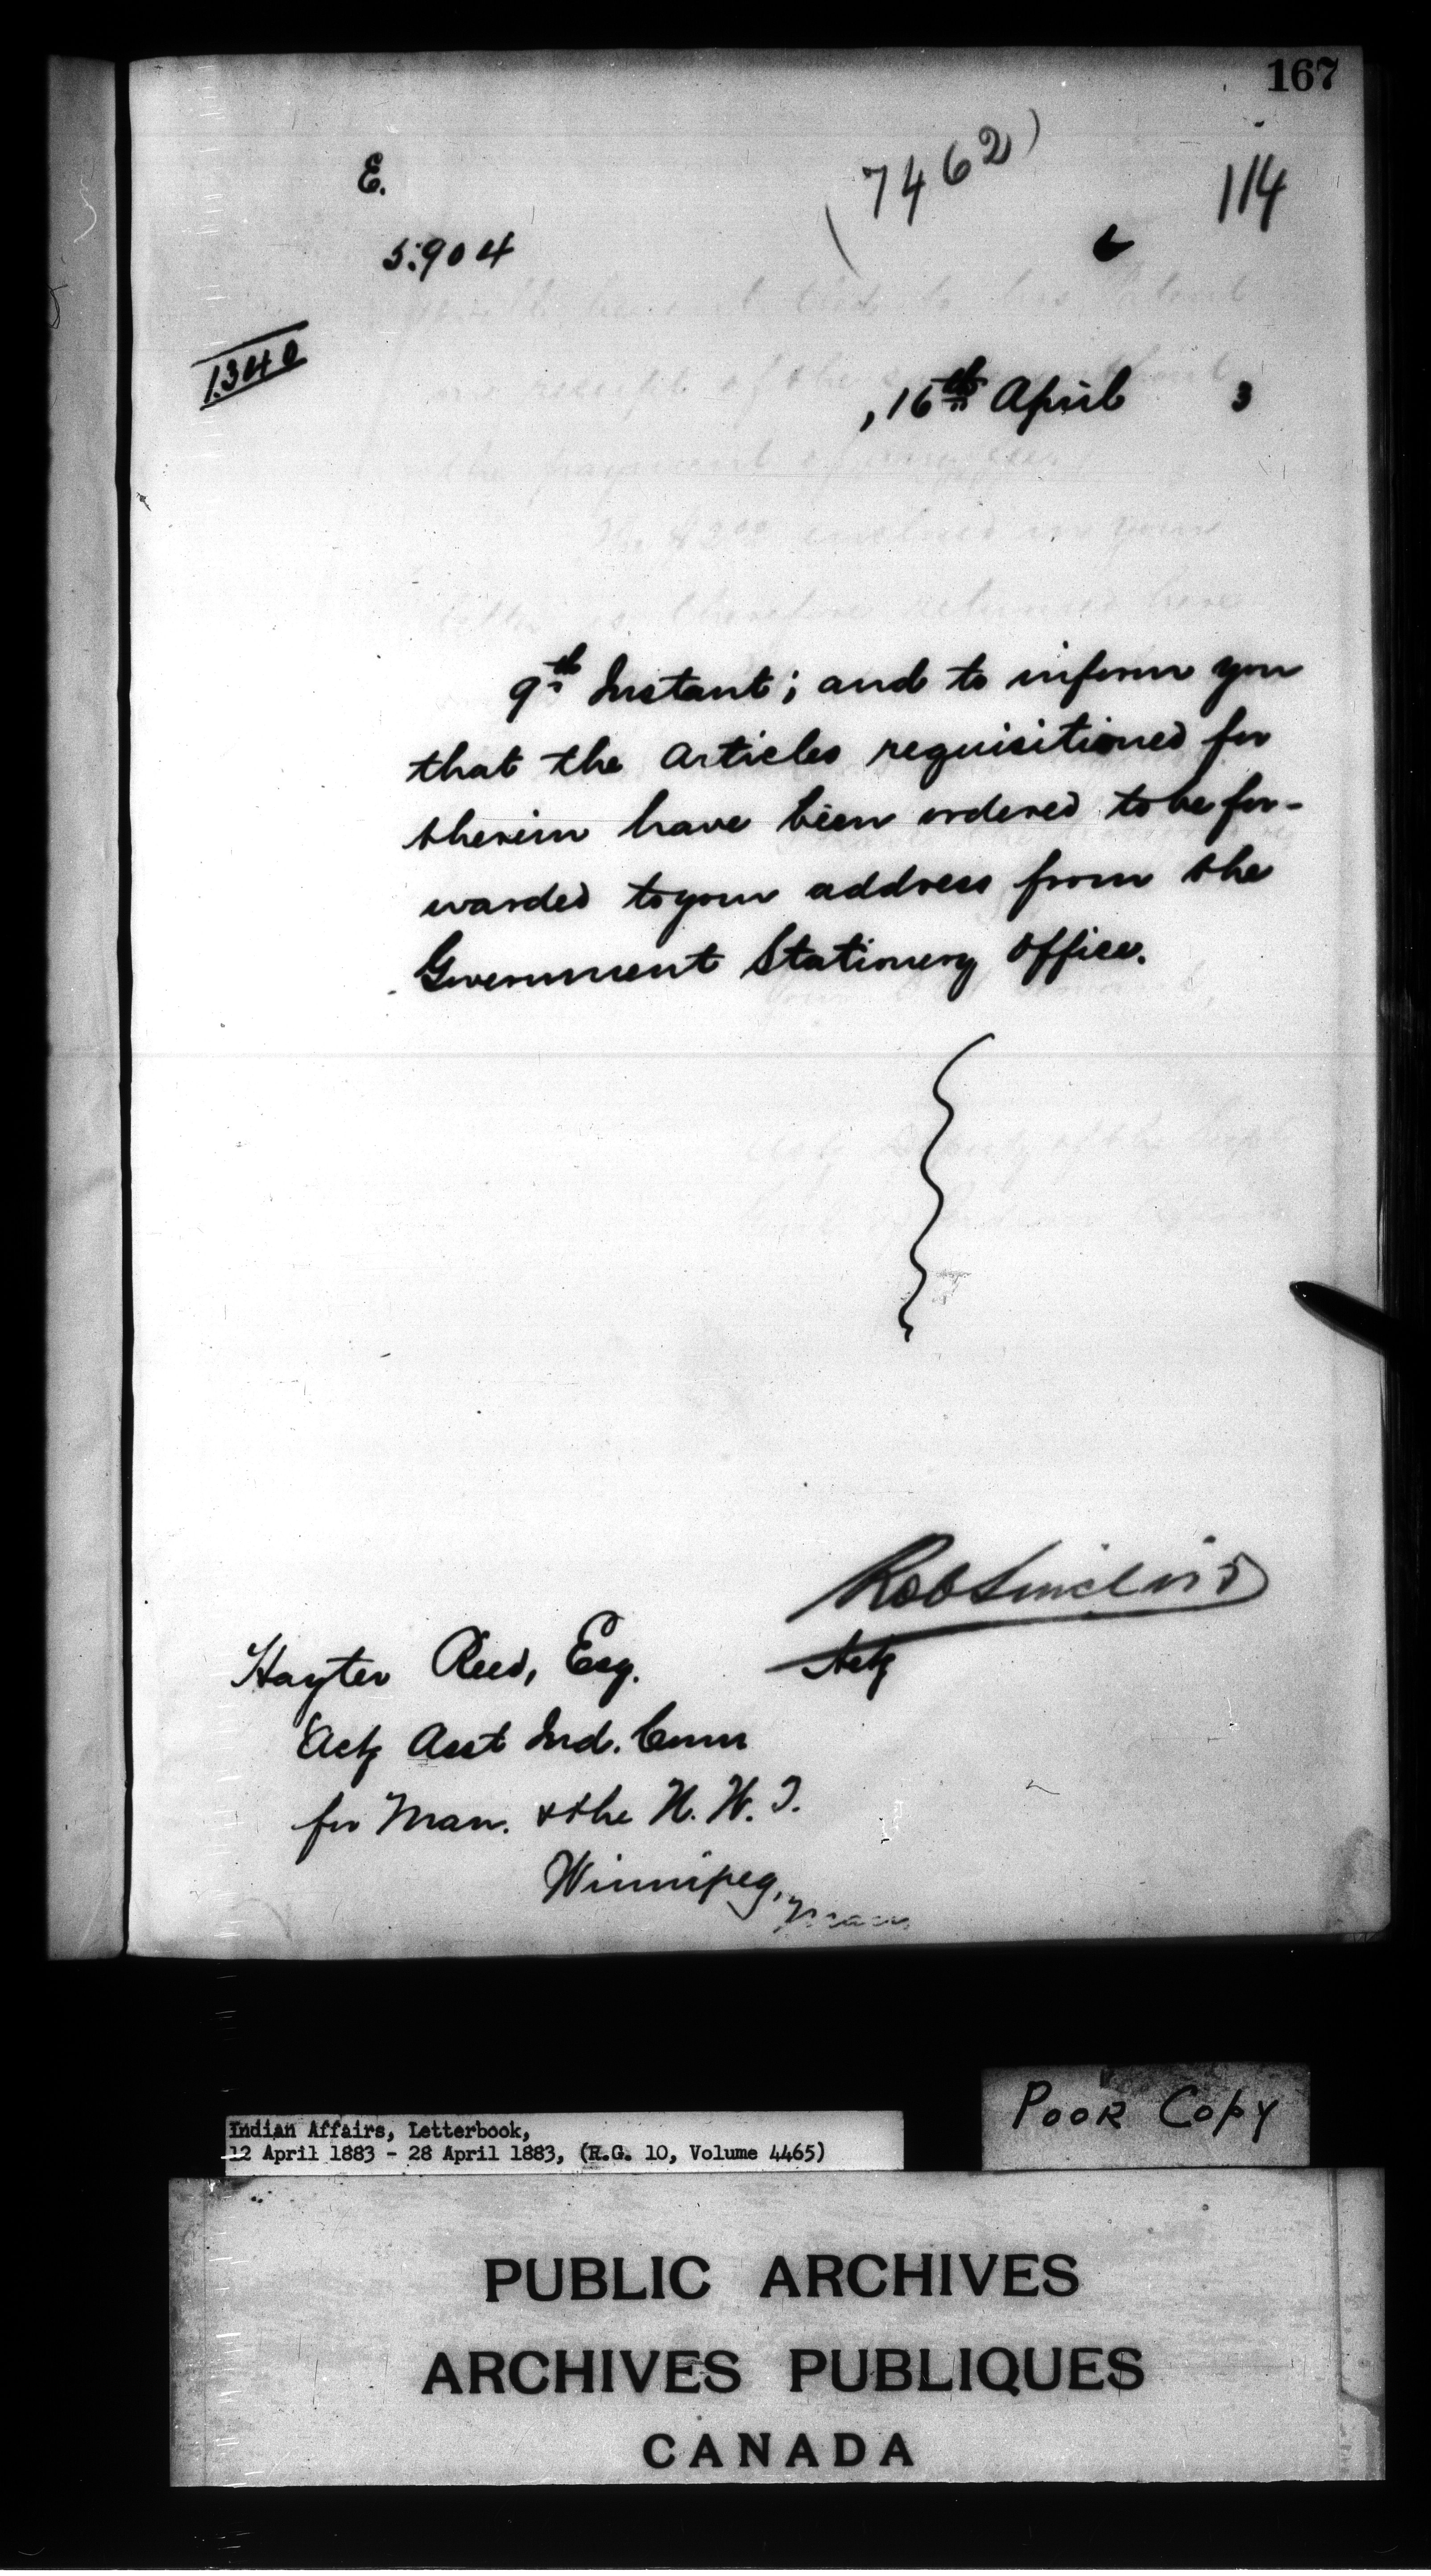 167
E.
(7462)
114
5.904
1340
, 16th April 3
9th Instant; and to inform you
that the Articles requisitioned for
therein have been ordered to be for-
warded to your address from the
Government Stationery Office.
Rob Sinclair
Actg
Hayter Reed, Esq.
Actg Asst Ind. Comm
for Man. & the N. W. T.
Winnipeg, Man.
POOR COPY
Indian Affairs, Letterbook,
12 April 1883 - 28 April 1883, (R.G. 10, Volume 4465)
PUBLIC ARCHIVES
ARCHIVES PUBLIQUES
CANADA